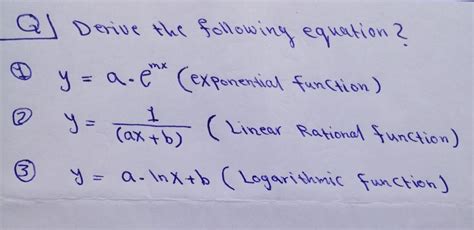 Q) Derive the following equation?
① y = a.e^mx (exponential function)
② y = 1/(ax+b) (Linear Rational function)
③ y = a.lnx+b (Logarithmic function)